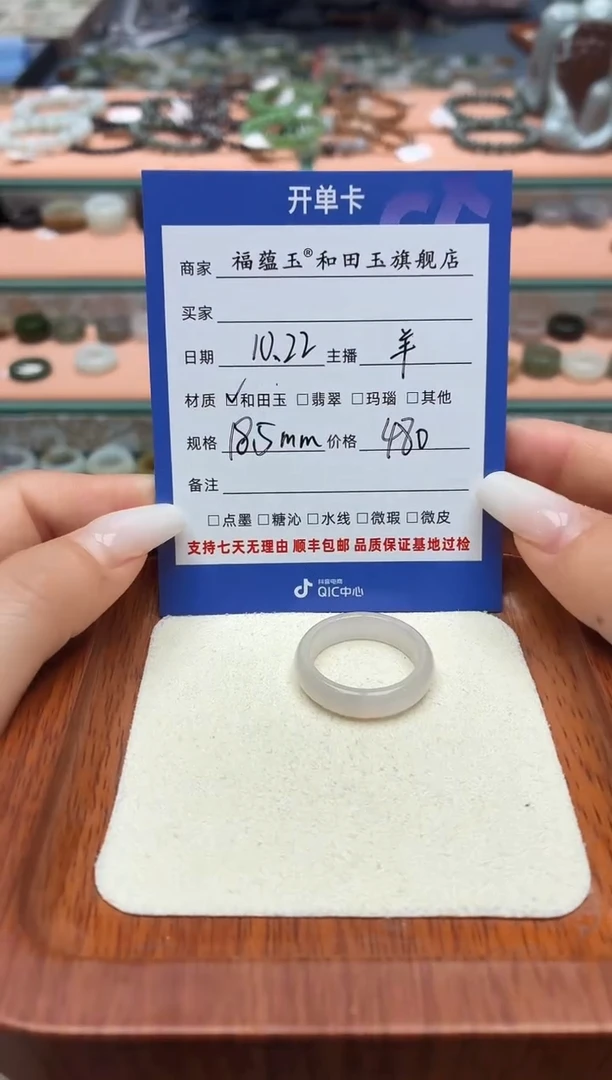 开单卡
商家 福蕴玉®和田玉旗舰店
买家
日期 10.22 主播 羊
材质 ☑和田玉 □翡翠 □玛瑙 □其他
规格 18.5mm 价格 480
备注
□点墨 □糖沁 □水线 □微瑕 □微皮
支持七天无理由 顺丰包邮 品质保证基地过检
抖音电商
QIC中心